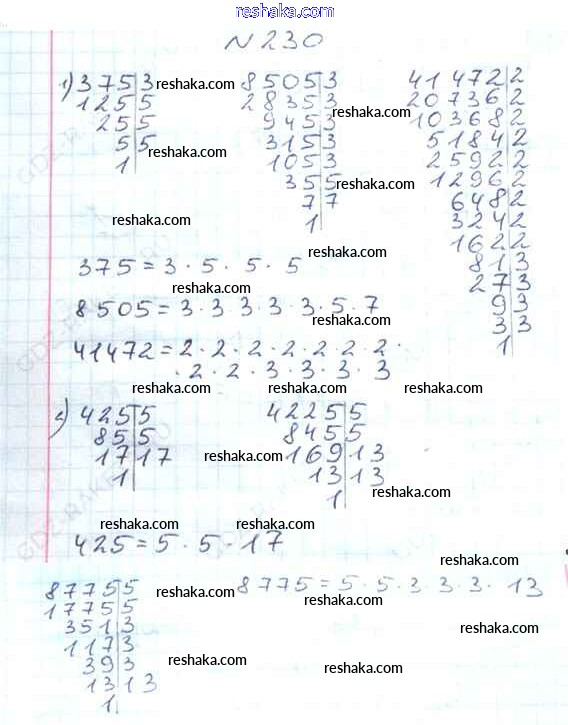 reshaka.com
N 230
1) 375|3
125|5
25|5
5|5
1
reshaka.com
reshaka.com
reshaka.com
8505|3
2835|3
945|3
315|3
105|3
35|5
7|7
1
reshaka.com
reshaka.com
reshaka.com
41472|2
20736|2
10368|2
5184|2
2592|2
1296|2
648|2
324|2
162|2
81|3
27|3
9|3
3|3
1
reshaka.com
375 = 3 · 5 · 5 · 5
reshaka.com
8505 = 3 · 3 · 3 · 3 · 3 · 5 · 7
reshaka.com
41472 = 2 · 2 · 2 · 2 · 2 · 2 · 2 ·
· 2 · 2 · 3 · 3 · 3 · 3
reshaka.com
reshaka.com
2) 425|5
85|5
17|17
1
reshaka.com
4225|5
845|5
169|13
13|13
1
reshaka.com
reshaka.com
reshaka.com
425 = 5 · 5 · 17
reshaka.com
8775|5
1775|5
351|3
117|3
39|3
13|13
1
reshaka.com
8775 = 5 · 5 · 3 · 3 · 3 · 13
reshaka.com
reshaka.com
reshaka.com
reshaka.com